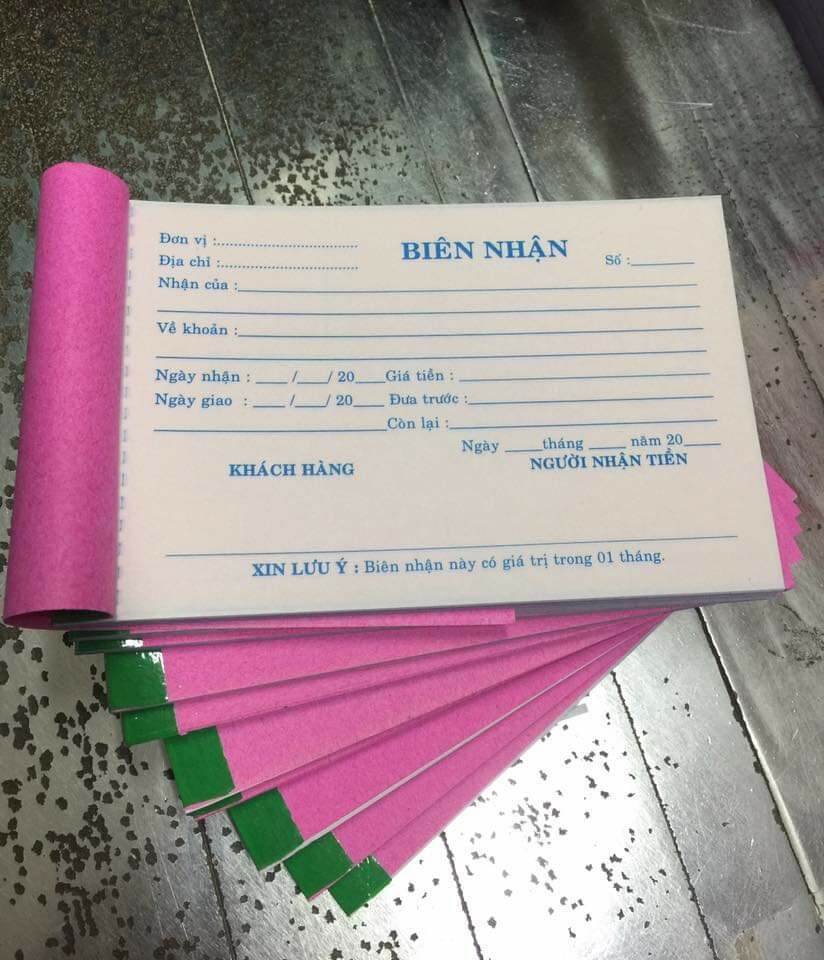 Đơn vị :
BIÊN NHẬN
Địa chỉ :
Số :
Nhận của :
Về khoản :
Ngày nhận : ___ /___/ 20___ Giá tiền :
Ngày giao : ___ /___/ 20___ Đưa trước :
Còn lại :
Ngày ___ tháng ___ năm 20___
KHÁCH HÀNG
NGƯỜI NHẬN TIỀN
XIN LƯU Ý : Biên nhận này có giá trị trong 01 tháng.